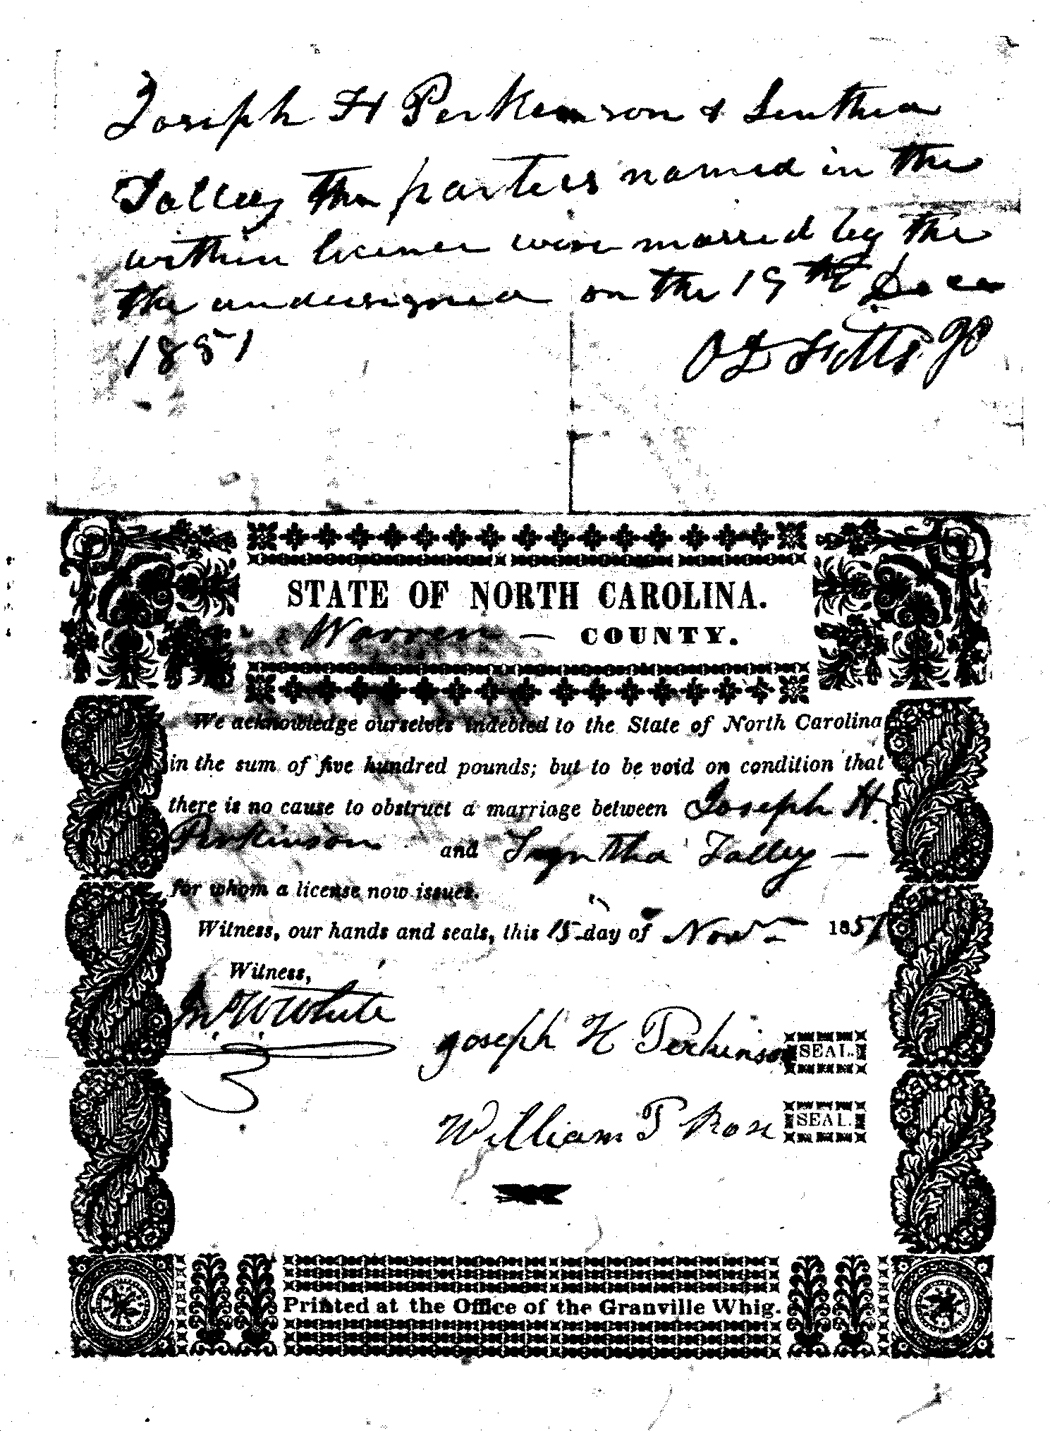 Joseph H Perkinson & Sinthea
Talley the parties named in the
within licence were marred by the
the undersigned on the 19th Dece
1851
O D Fitts JP
STATE OF NORTH CAROLINA.
Warren — COUNTY.
We acknowledge ourselves indebted to the State of North Carolina
in the sum of five hundred pounds; but to be void on condition that
there is no cause to obstruct a marriage between Joseph H.
Perkinson and Syntha Talley —
for whom a license now issues.
Witness, our hands and seals, this 15 day of Novr 1851
Witness,
Jn. W. White
Joseph H Perkinson SEAL.
William T Rose SEAL.
Printed at the Office of the Granville Whig.